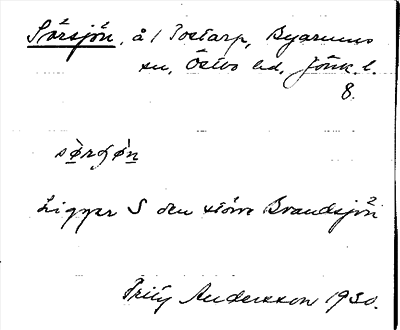 Sörsjön, å / Tostarp, Byarums
sn, Östbo hd, Jönk. l.
8.
sø̀rʃø̀n
Ligger S den större Brandsjön
Fritz Andersson 1930.